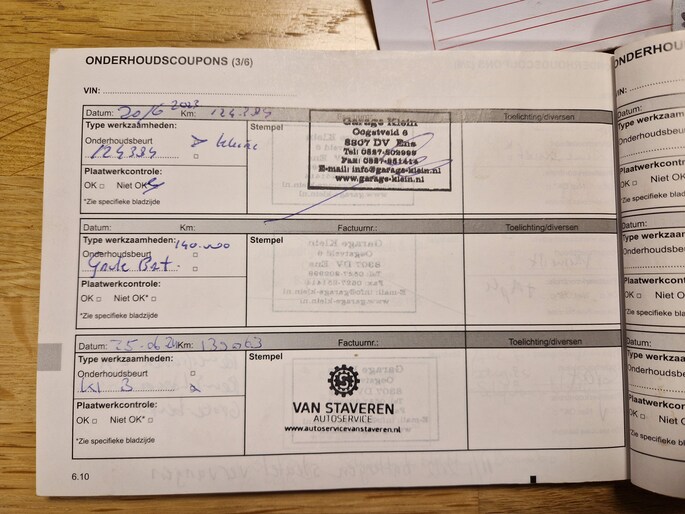 ONDERHOUDSCOUPONS (3/6)
VIN:
Datum: 20/6 2023 Km: 124.384 Toelichting/diversen
Type werkzaamheden: Stempel
Onderhoudsbeurt
124384
Garage Klein
Oogstveld 6
8307 DV Ens
Tel: 0527-202999
Fax: 0527-251414
E-mail: info@garage-klein.nl
www.garage-klein.nl
Plaatwerkcontrole:
OK Niet OK
*Zie specifieke bladzijde
Datum: Km: Factuurnr.: Toelichting/diversen
Type werkzaamheden: 140.000 Stempel
Onderhoudsbeurt
Grote Brt.
Plaatwerkcontrole:
OK Niet OK*
*Zie specifieke bladzijde
Datum: 25-06 24 Km: 139063 Factuurnr.: Toelichting/diversen
Type werkzaamheden: Stempel
Onderhoudsbeurt
kl B
VAN STAVEREN
AUTOSERVICE
www.autoservicevanstaveren.nl
Plaatwerkcontrole:
OK Niet OK*
*Zie specifieke bladzijde
6.10
VIN:
Datum:
Type werkzaam
Onderhoudsbeurt
Plaatwerkcontrole
OK Niet OK
*Zie specifieke bladz
Datum:
Type werkzaam
Onderhoudsbeur
Plaatwerkcontr
OK Niet OK
*Zie specifieke blad
Datum:
Type werkzaam
Onderhoudsbeu
Plaatwerkcont
OK Niet O
*Zie specifieke bla